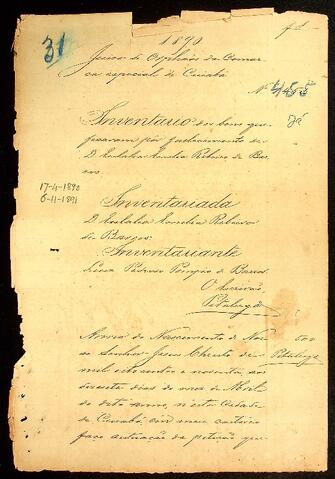 1890
31
Juizo de Orphãos da Comar
ca especial de Cuiabá
Nº 455
Inventario dos bens que
ficaram por fallecimento de
D. Eulalia Amelia Ribeiro de Bar
ros.
17-4-1890
6-11-1891
Inventariada
D. Eulalia Amelia Ribeiro
de Barros
Inventariante
Pedroso Pompêo de Barros
O Escrivão
Anno do Nascimento de Nos
so Senhor Jesus Christo de
mil oitocentos e noventa, aos
dias do mez de Abril
do dito anno, n'esta Cidade
de Cuiabá, em meu cartorio
faço autuação da petição que